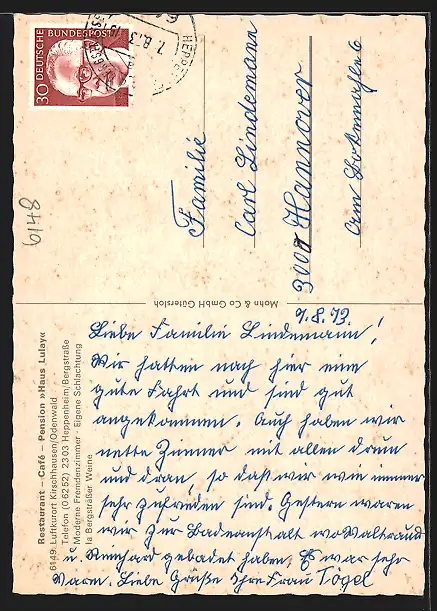 Restaurant – Café – Pension »Haus Lulay«
6149 Luftkurort Kirschhausen/Odenwald
Telefon (0 62 52) 23 03 Heppenheim/Bergstraße
Moderne Fremdenzimmer · Eigene Schlachtung
Ia Bergsträßer Weine
Mohn & Co GmbH Gütersloh
30 DEUTSCHE BUNDESPOST
7.8.73
HEPPE
6148
Familie
Carl Lindemann
3000 Hannover
Am
7.8.73.
Liebe Familie Lindemann!
Wir hatten nach hier eine
gute Fahrt und sind gut
angekommen. Auch haben wir
nette Zimmer mit allen drum
und dran, so daß wir wie immer
sehr zufrieden sind. Gestern waren
wir zur Badeanstalt wo Waltraud
u. Reinhard gebadet haben, Es war sehr
warm. Liebe Grüße Ihre Frau Tögel